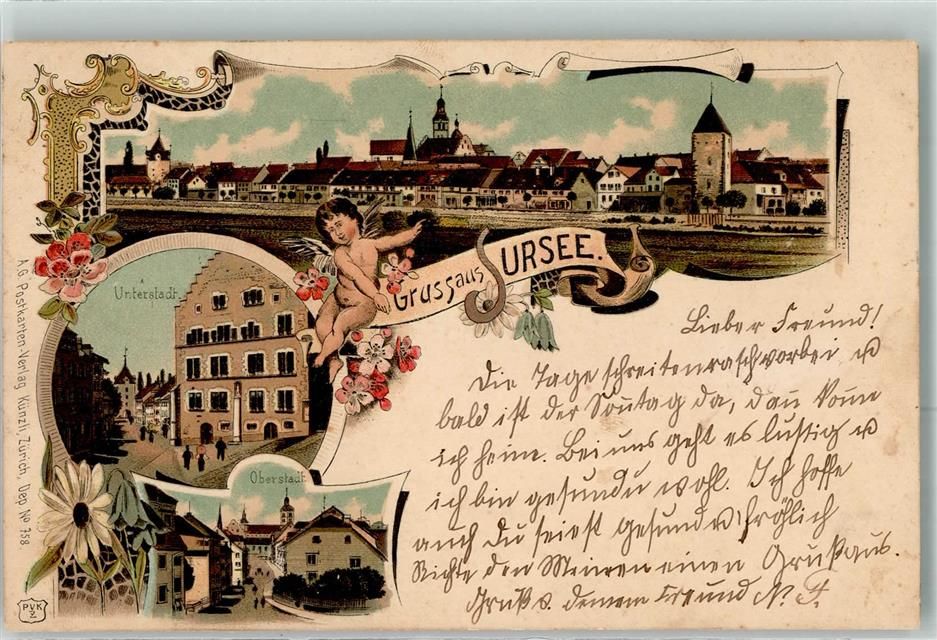 Gruss aus SURSEE.
Unterstadt.
Oberstadt.
A.G. Postkarten-Verlag Künzli, Zürich, Dep No 758.
PVK
Z
Lieber Freund!
Die Tage schreiten rasch vorbei u
bald ist der Sonntag da, dan könne
ich heim. Bei uns geht es lustig u
ich bin gesund u wohl. Ich hoffe
auch du seiest gesund u. fröhlich
Richte den Meinen einen Gruß aus.
Gruß v. deinem Freund N. F.